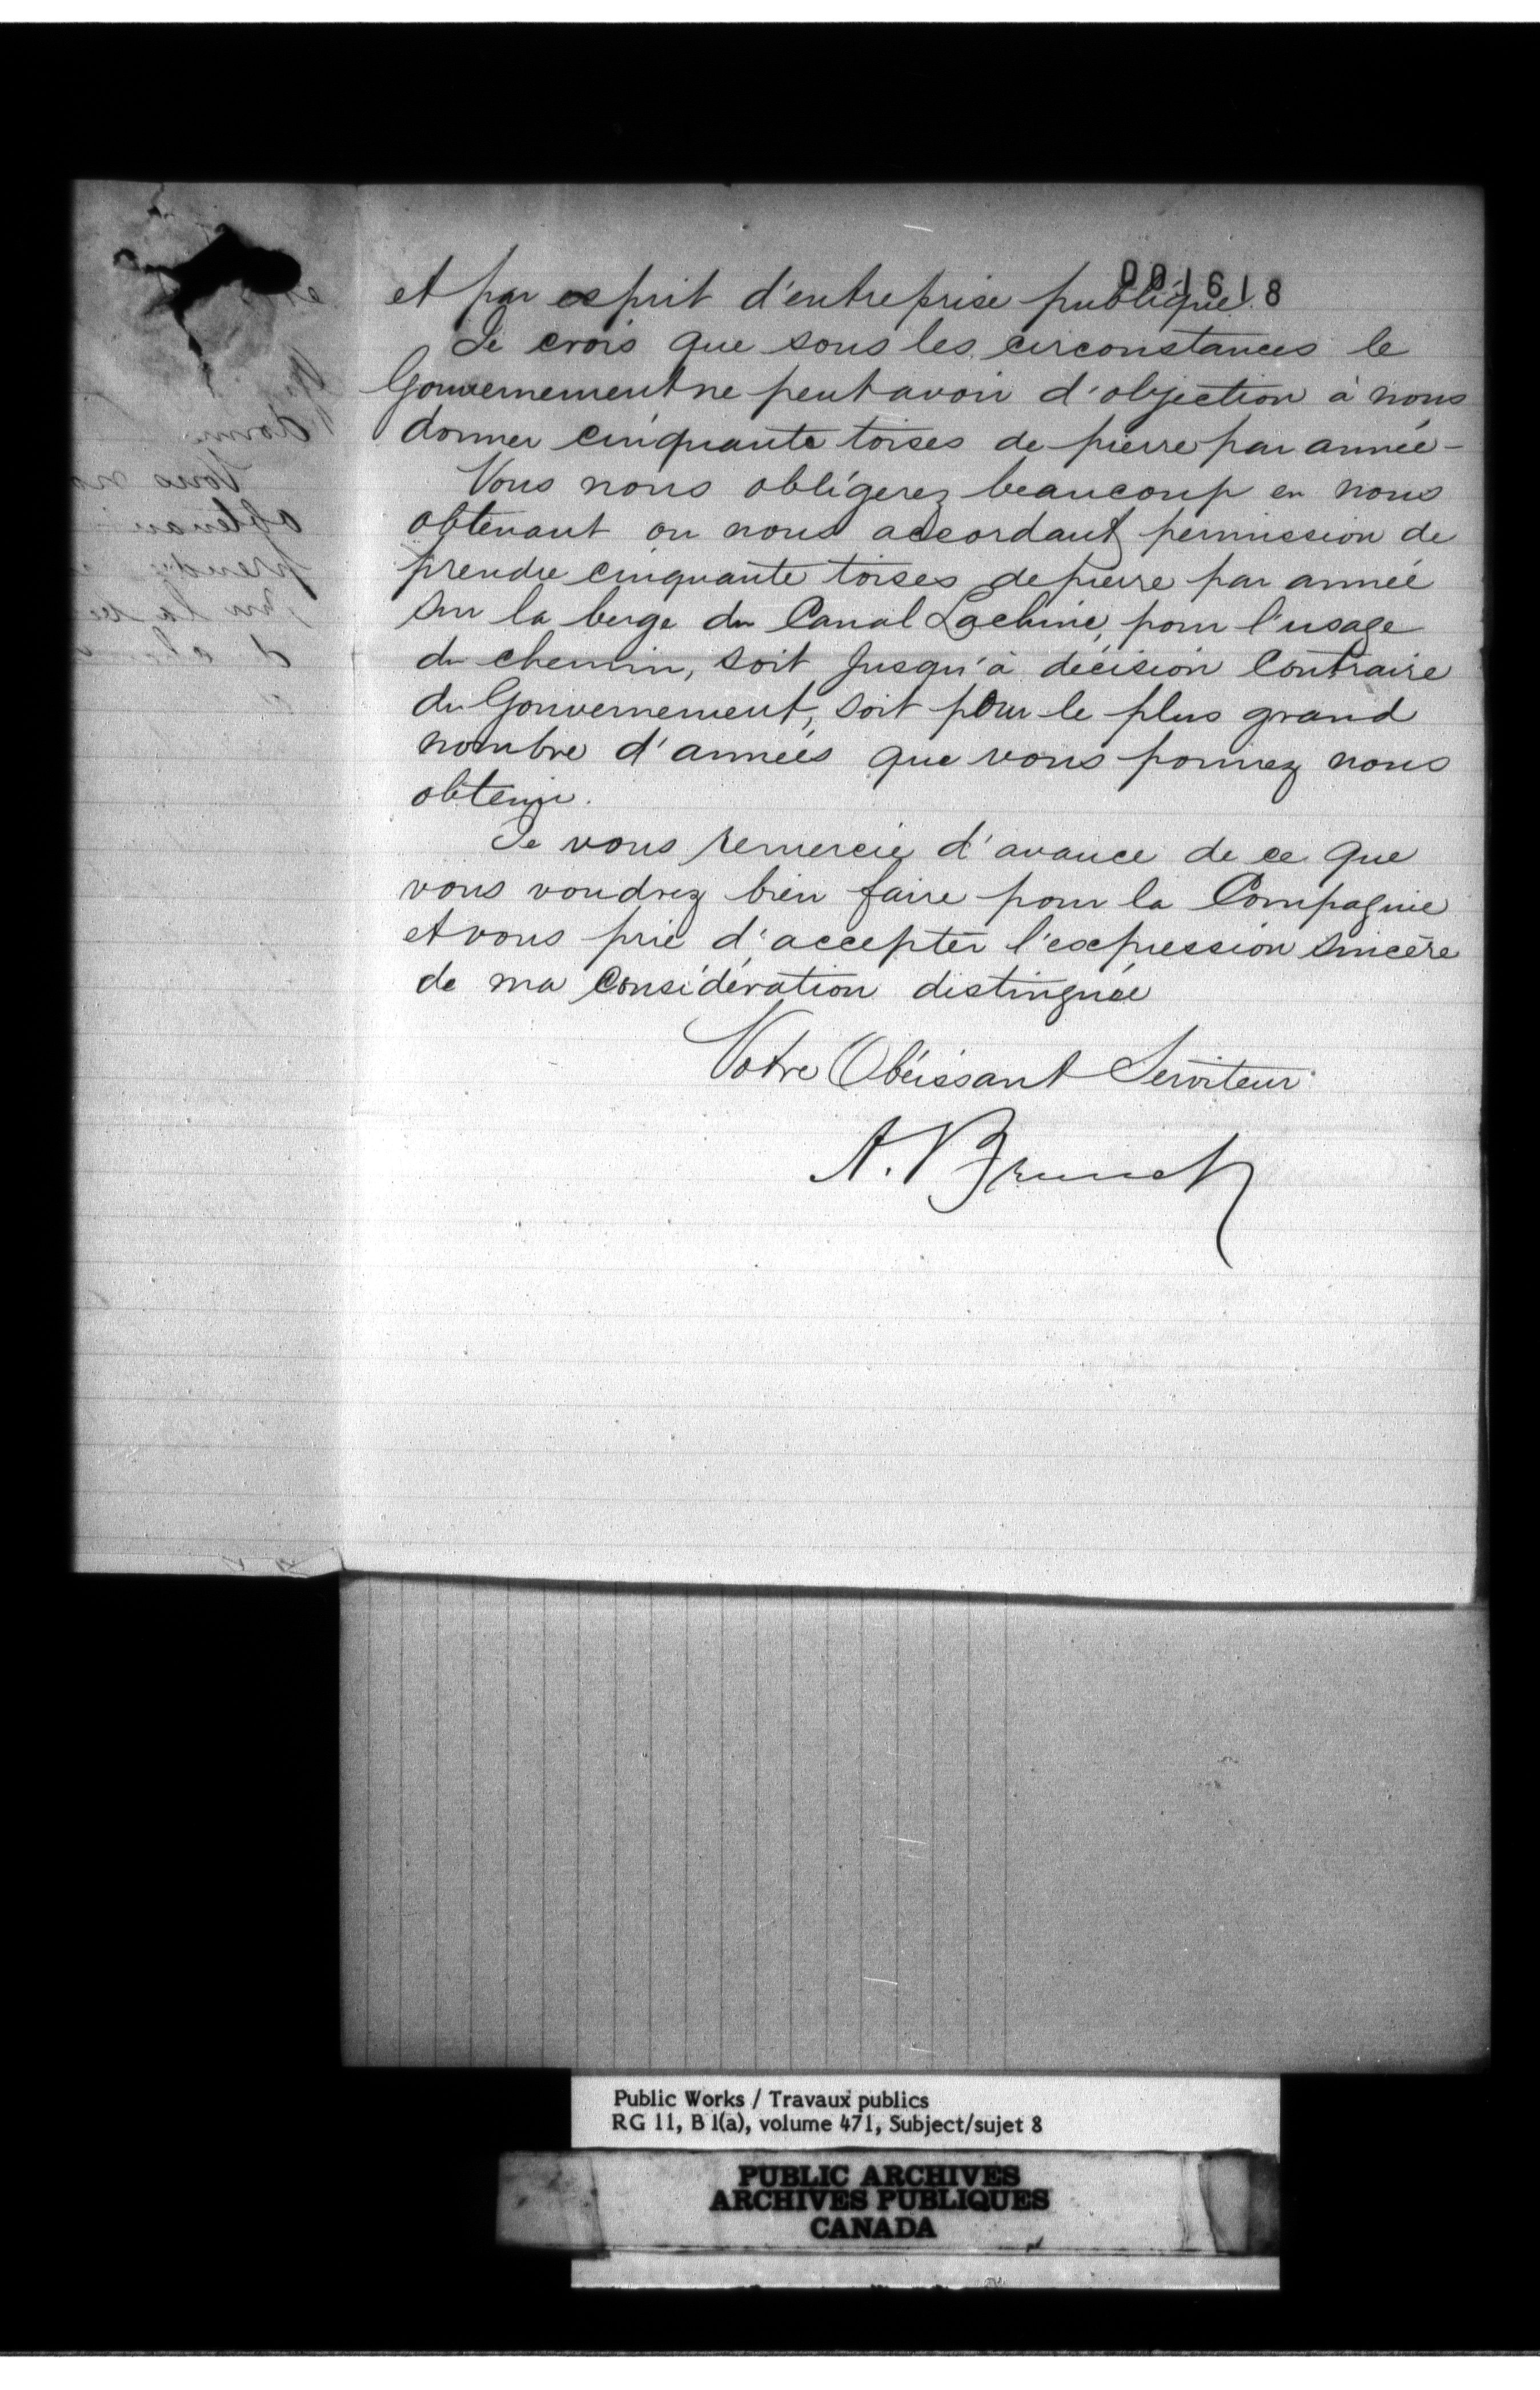 001618
et par esprit d'entreprise publique.
Je crois que sous les circonstances le
Gouvernement ne peut avoir d'objection à nous
donner cinquante toises de pierre par année -
Vous nous obligerez beaucoup en nous
obtenant ou nous accordant permission de
prendre cinquante toises de pierre par année
sur la berge du Canal Lachine, pour l'usage
du chemin, soit jusqu'à décision contraire
du Gouvernement, soit pour le plus grand
nombre d'années que vous pourrez nous
obtenir.
Je vous remercie d'avance de ce que
vous voudrez bien faire pour la Compagnie
et vous prie d'accepter l'expression sincère
de ma considération distinguée
Votre Obéissant Serviteur
A. Brunet
Public Works / Travaux publics
RG 11, B 1(a), volume 471, Subject/sujet 8
PUBLIC ARCHIVES
ARCHIVES PUBLIQUES
CANADA